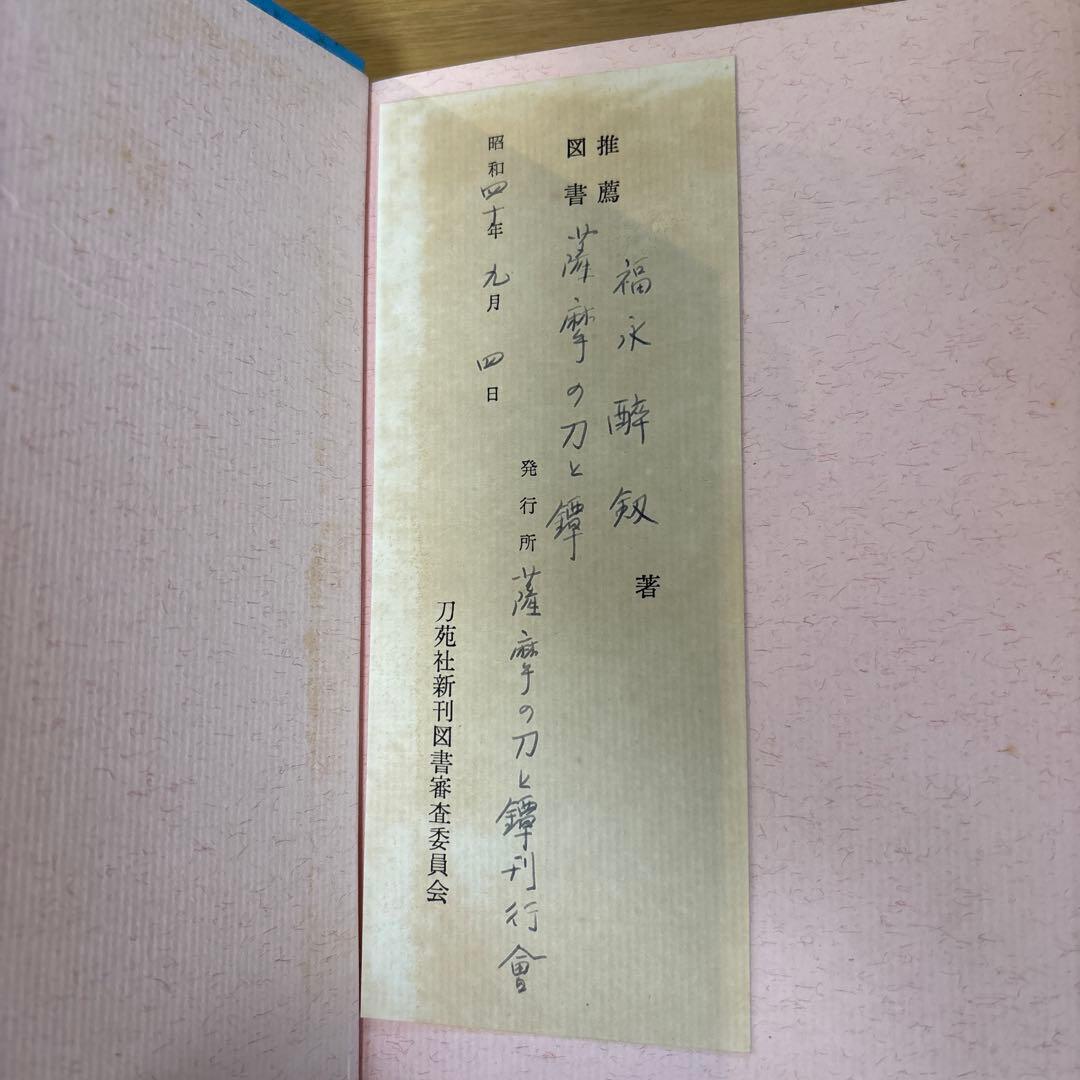 推薦
図書
福永酔釼著
薩摩の刀と鐔
発行所 薩摩の刀と鐔刊行會
昭和四十年九月四日
刀苑社新刊図書審査委員会